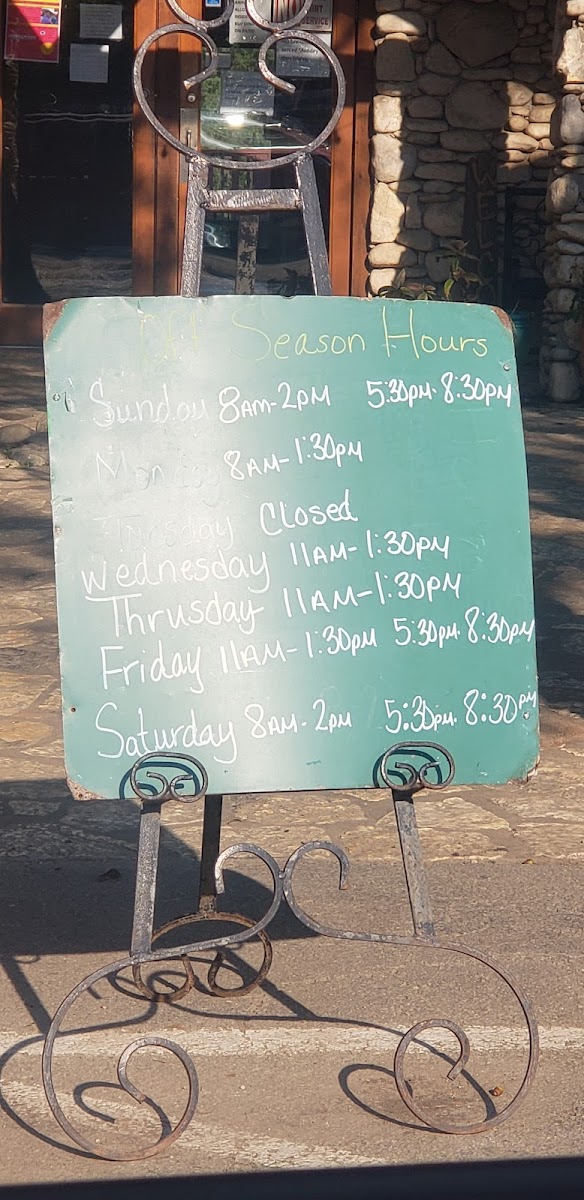 Off Season Hours
Sunday 8AM-2PM 5:30PM-8:30PM
Monday 8AM-1:30PM
Tuesday Closed
Wednesday 11AM-1:30PM
Thrusday 11AM-1:30PM
Friday 11AM-1:30PM 5:30PM-8:30PM
Saturday 8AM-2PM 5:30PM-8:30PM